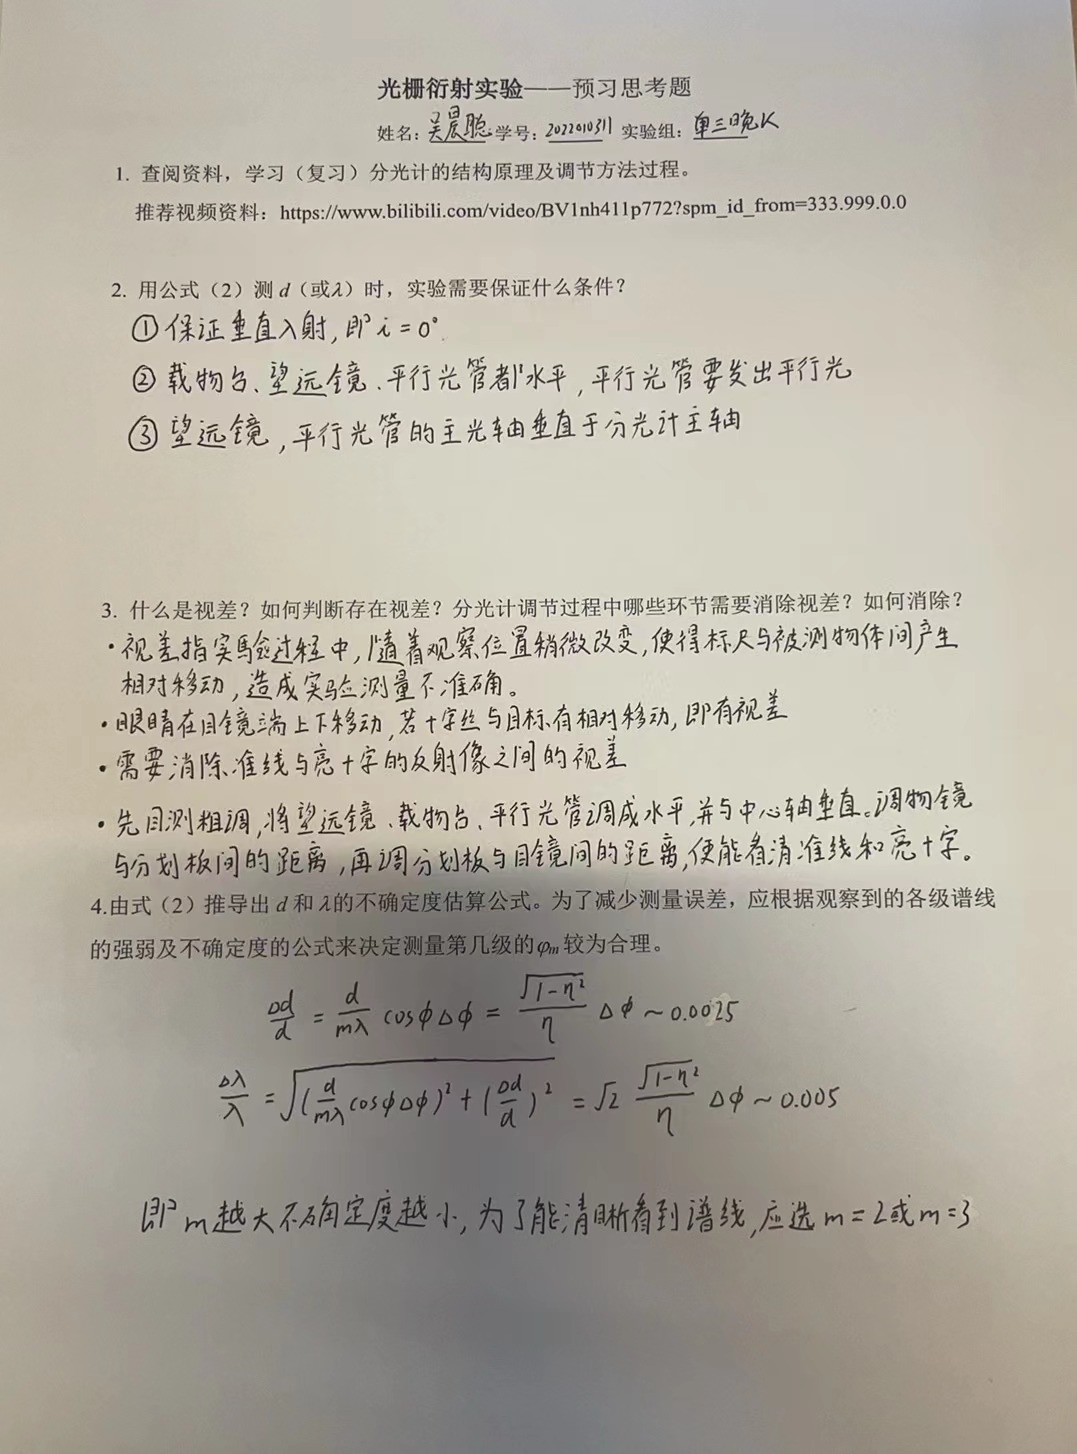 光栅衍射实验——预习思考题
姓名：吴晨聪 学号：2022010311 实验组：单三晚K
1. 查阅资料，学习（复习）分光计的结构原理及调节方法过程。
推荐视频资料：https://www.bilibili.com/video/BV1nh411p772?spm_id_from=333.999.0.0
2. 用公式（2）测 d（或λ）时，实验需要保证什么条件？
①保证垂直入射，即 i = 0°.
②载物台、望远镜、平行光管都水平，平行光管要发出平行光
③望远镜，平行光管的主光轴垂直于分光计主轴
3. 什么是视差？如何判断存在视差？分光计调节过程中哪些环节需要消除视差？如何消除？
·视差指实验过程中，随着观察位置稍微改变，使得标尺与被测物体间产生
相对移动，造成实验测量不准确。
·眼睛在目镜端上下移动，若十字丝与目标有相对移动，即有视差
·需要消除准线与亮十字的反射像之间的视差
·先目测粗调，将望远镜、载物台、平行光管调成水平，并与中心轴垂直。调物镜
与分划板间的距离，再调分划板与目镜间的距离，使能看清准线和亮十字。
4.由式（2）推导出 d 和 λ的不确定度估算公式。为了减少测量误差，应根据观察到的各级谱线
的强弱及不确定度的公式来决定测量第几级的φm 较为合理。
Δd/d = d/mλ cosϕΔϕ = √(1-η²)/η Δϕ ~ 0.0025
Δλ/λ = √((d/mλ cosϕΔϕ)² + (Δd/d)²) = √2 √(1-η²)/η Δϕ ~ 0.005
即 m 越大不确定度越小，为了能清晰看到谱线，应选 m = 2或 m = 3